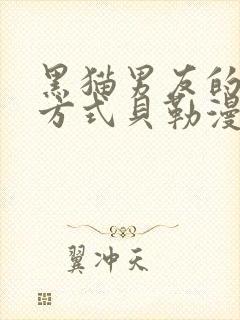 黑猫男友的
方式贝勒漫
翼冲天